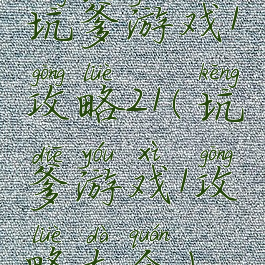 坑爹游戏1
gōng lüè kēng
攻略21(坑
diē yóu xì gōng
爹游戏1攻
lüè dà quán
略大全)